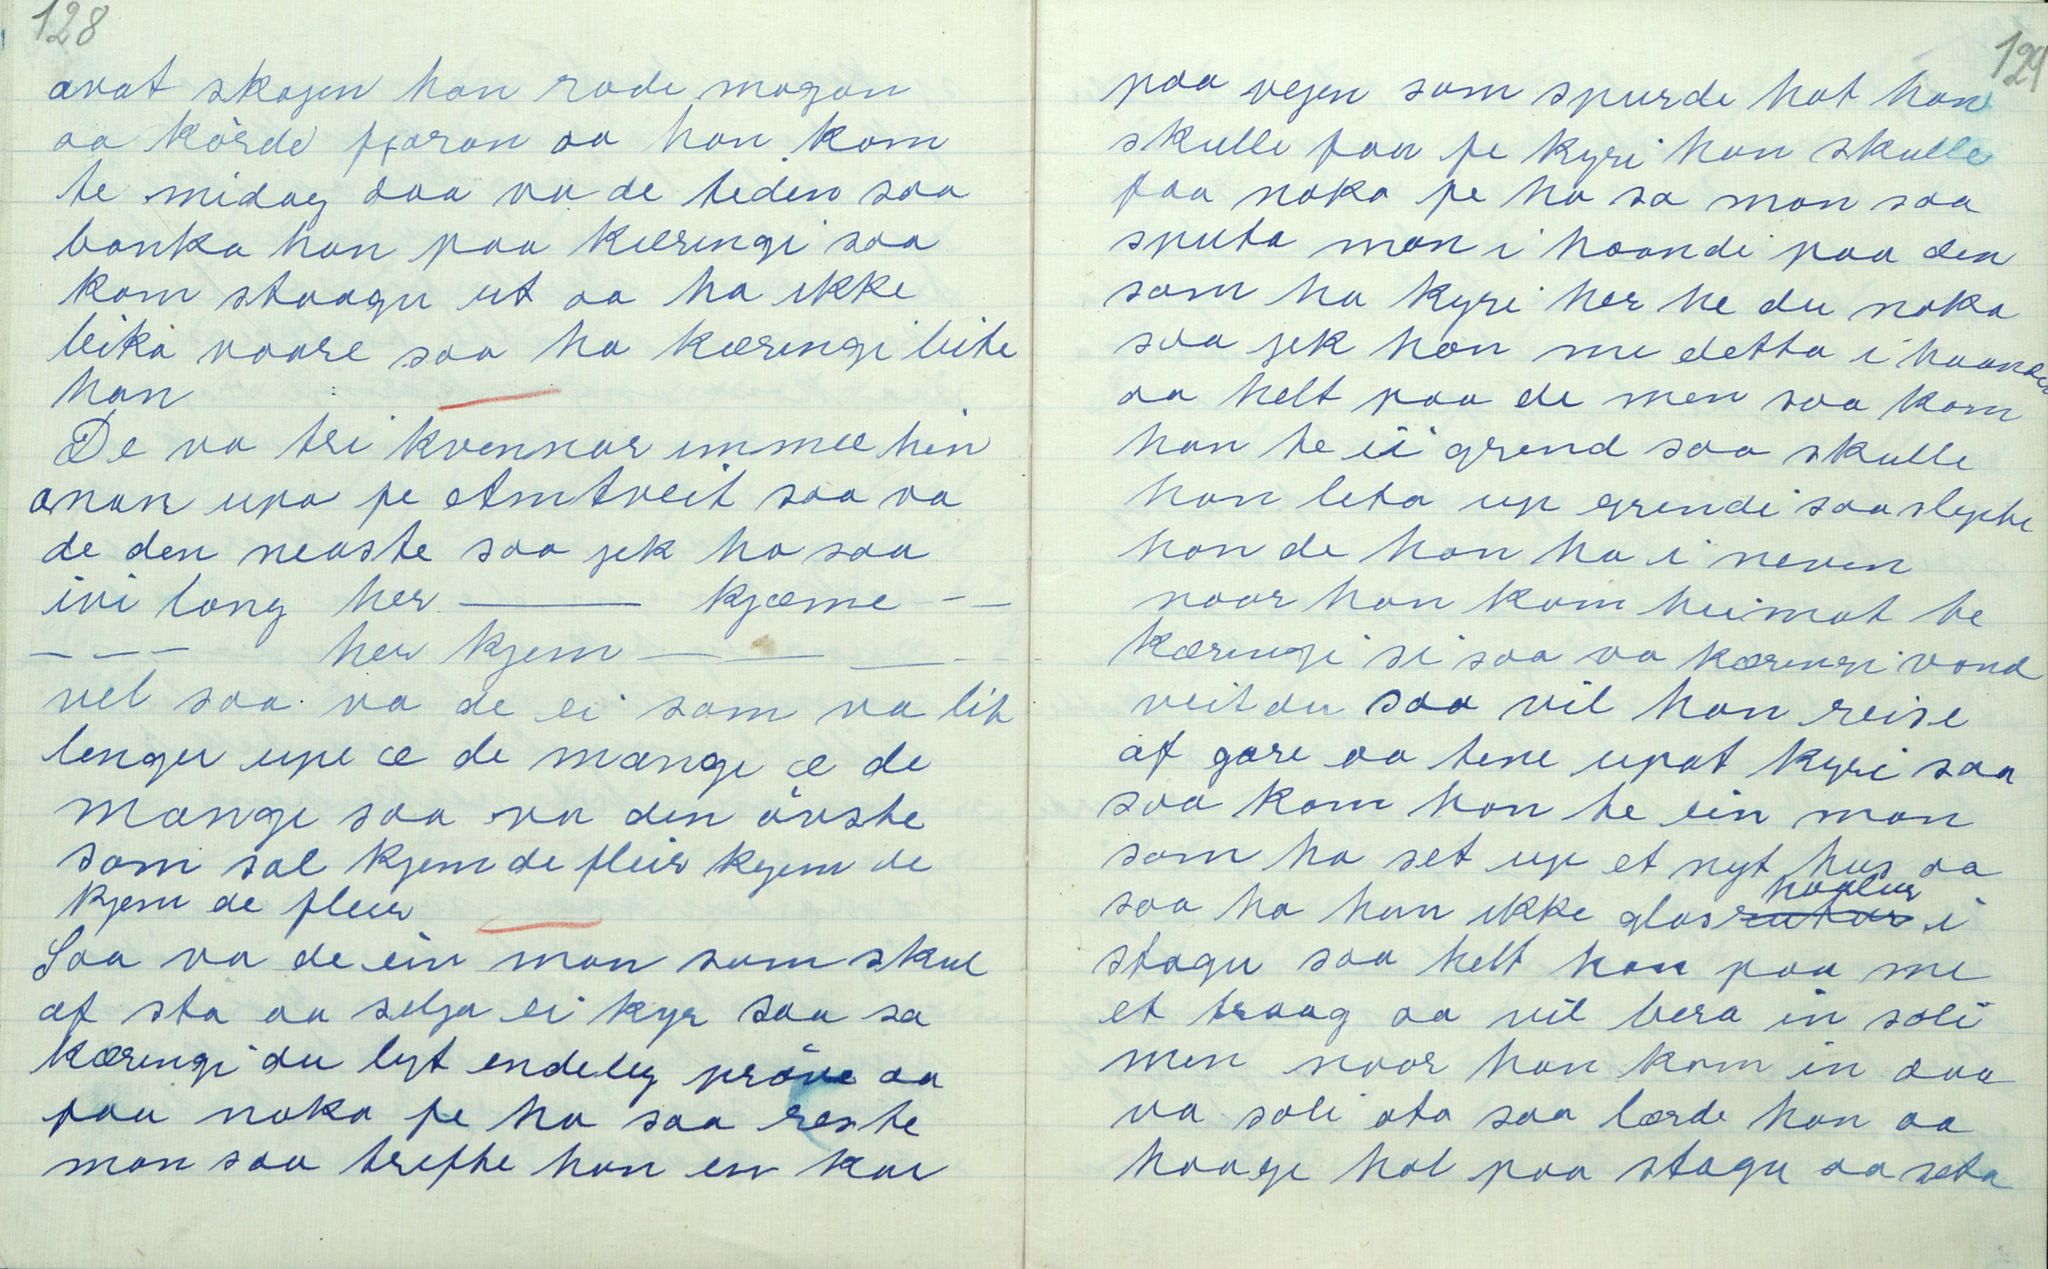 128
avat skogen han rade magan
aa körde fjøran aa han kom
te midag daa va de teden saa
banka han paa kæringi saa
kom staagu ut aa ha ikke
leika vaare saa ha kæringi leite
han
De va tri kvennar immæ hin
anan upa fe Amtveit saa va
de den neaste saa jek ha saa
ivi lang her ——— kjæme – –
– – – her kjem — — — –
vel saa va de ei som va lit
lenger upe æ de mange æ de
mange saa va den övste
som sal kjem de fleir kjem de
kjem de fleir
Saa va de ein man som skul
af sta aa selja ei kyr saa sa
kæringi du lyt endeleg pröve aa
faa noka fe ha saa reiste
man saa trefte han en kar
129
paa vejen som spurde hat han
skulle faa fe kyri han skulle
faa noka fe ha sa man saa
sputa man i haandi paa den
som ha kyri her he du noka
saa jek han me detta i haanden
aa helt paa de men saa kom
han te ei grend saa skulle
han leta up grendi saa slepte
han de han ha i neven
naar han kom heimat te
kæringi si saa va kæringi vond
veit du saa vil han reise
af gare aa tene upat kyri saa
saa kom han te ein man
som ha set up et nyt hus aa
saa ha hun ikke glasrutur haalur i
stagu saa helt han paa me
et traag aa vil bera in soli
men naar han kom in daa
va soli ota saa lærde han aa
haage hal paa stagu aa seta